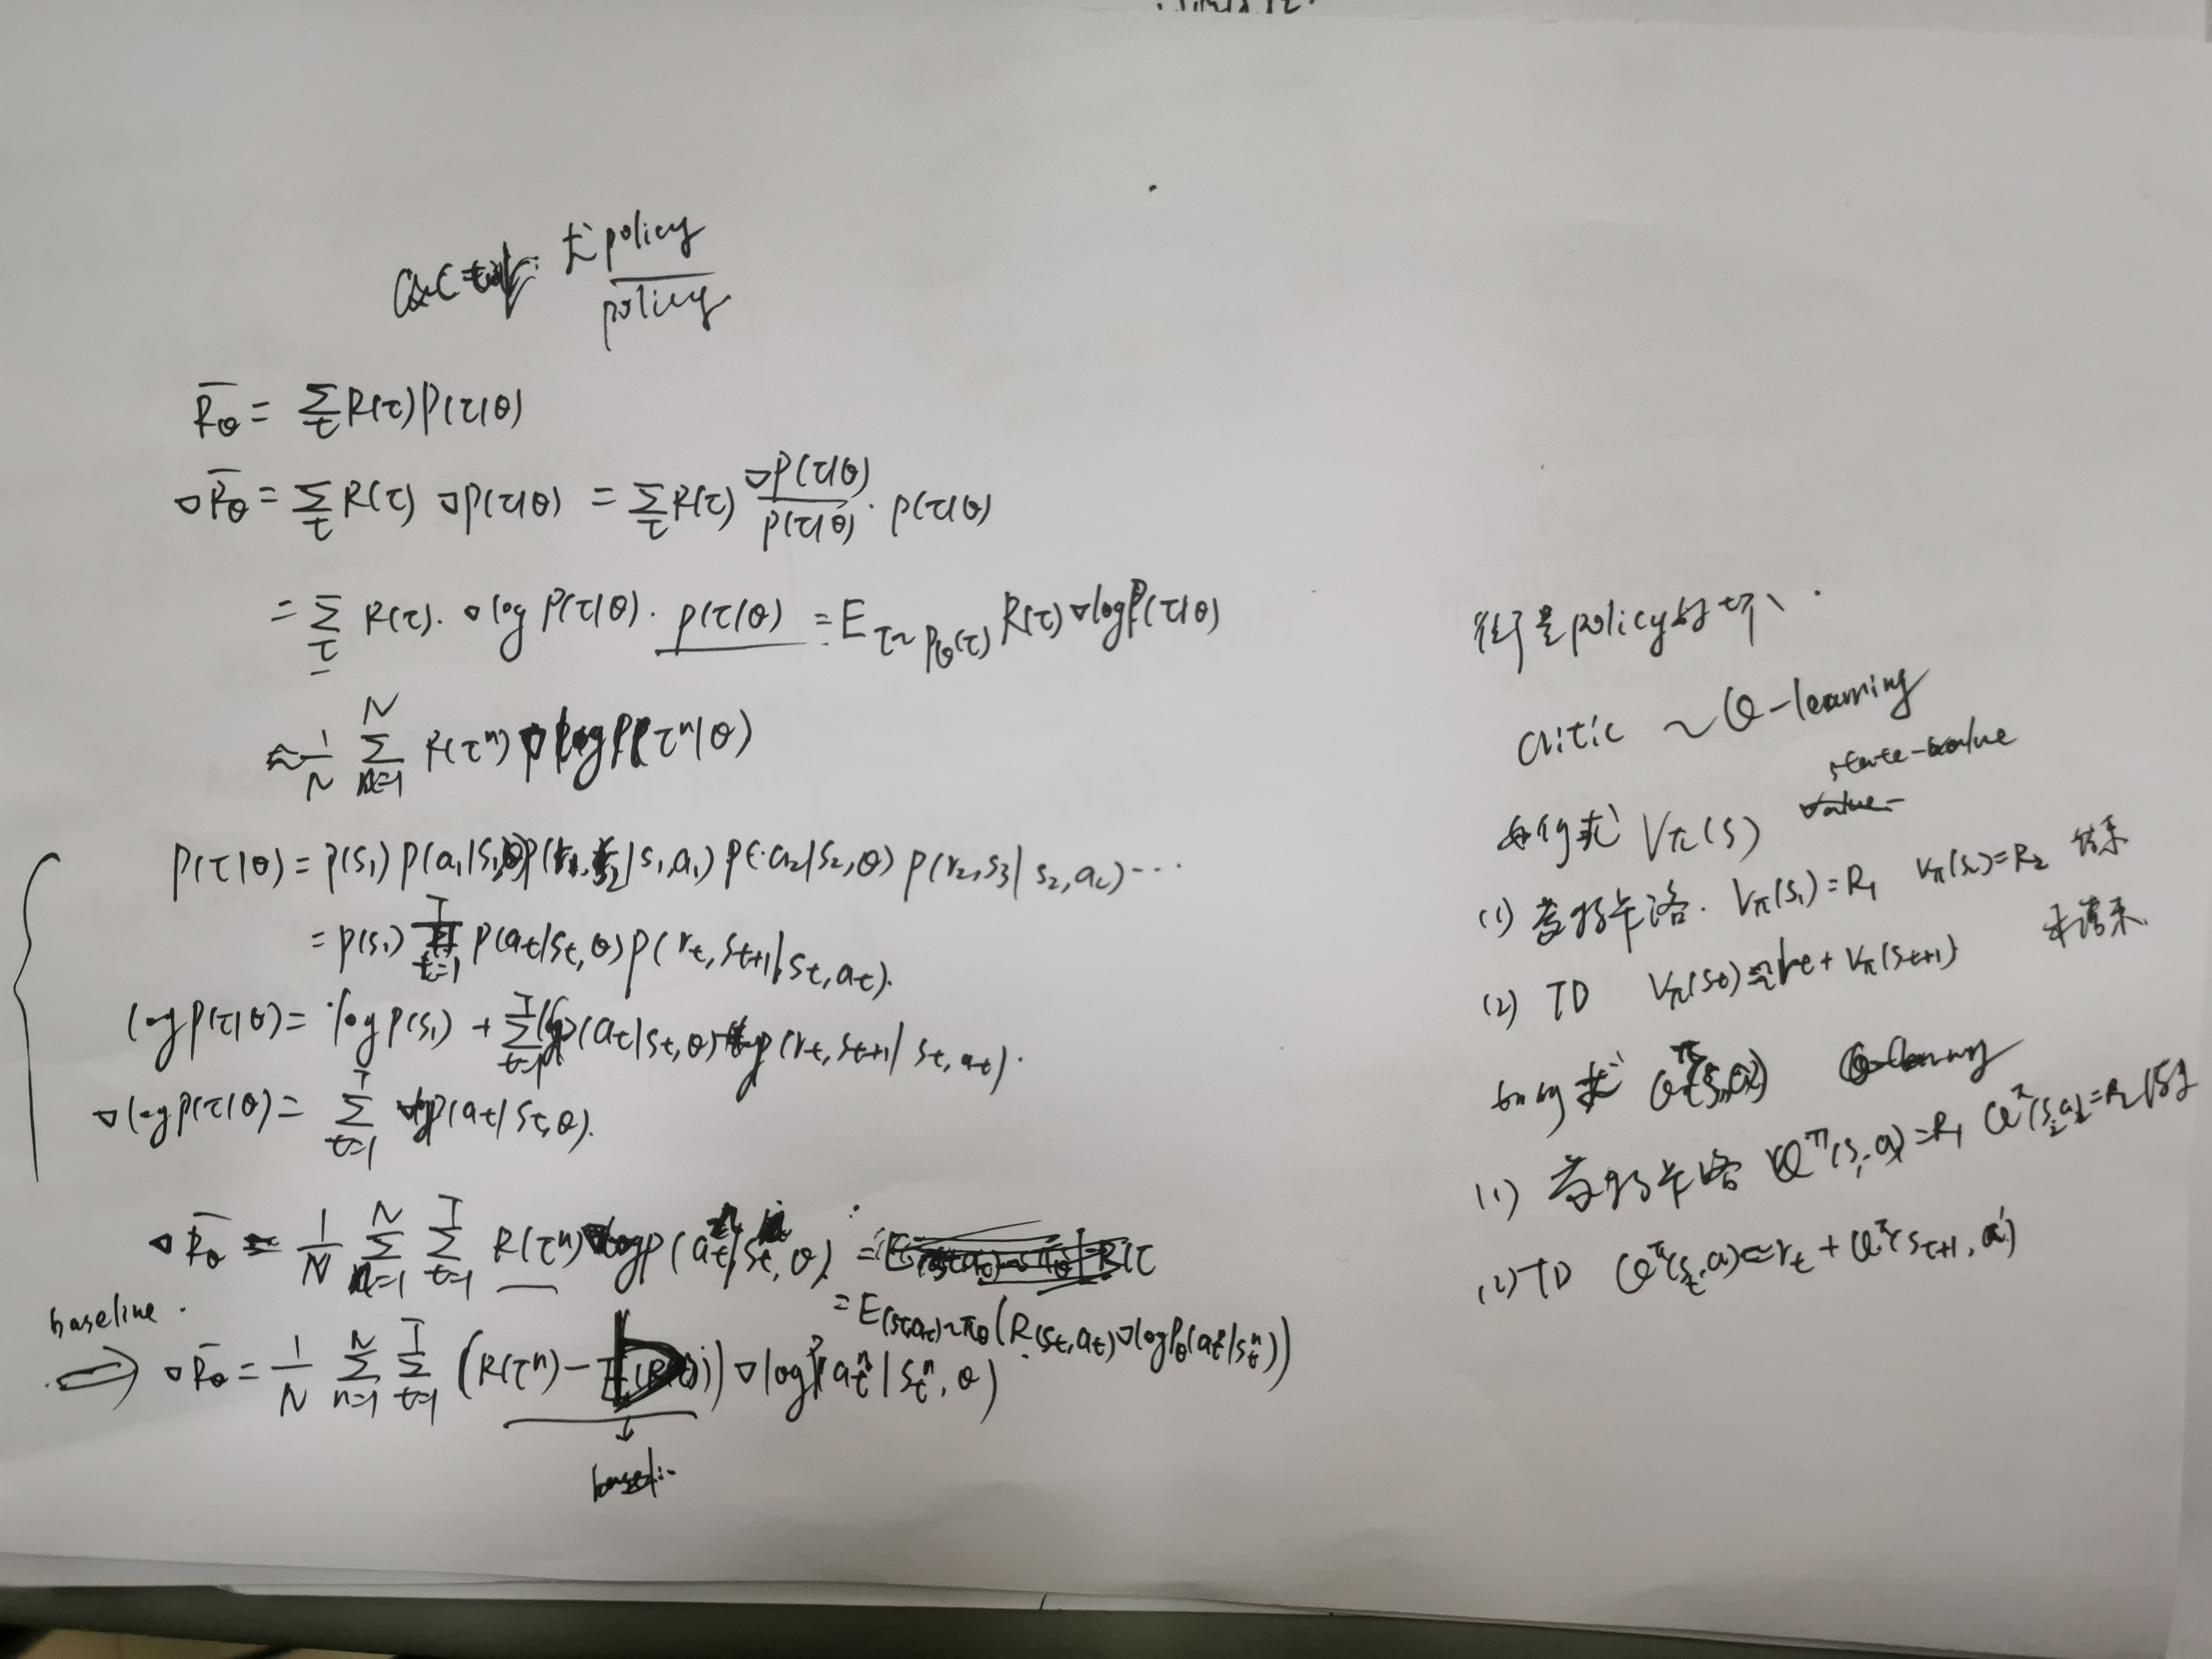 求policy
policy
R̄θ = Σ_τ R(τ)P(τ|θ)
▽R̄θ = Σ_τ R(τ) ▽P(τ|θ) = Σ_τ R(τ) ▽P(τ|θ)/P(τ|θ) · P(τ|θ)
= Σ_τ R(τ)·▽log P(τ|θ)·P(τ|θ) = E_{τ~Pθ(τ)} R(τ)▽logP(τ|θ)
≈ 1/N Σ_{n=1}^N R(τⁿ)▽logP(τⁿ|θ)
P(τ|θ) = P(s₁)P(a₁|s₁,θ)P(r₁,s₂|s₁,a₁)P(a₂|s₂,θ)P(r₂,s₃|s₂,a₂)···
= P(s₁) Π_{t=1}^T P(a_t|s_t,θ)P(r_t,s_{t+1}|s_t,a_t).
logP(τ|θ) = logP(s₁) + Σ_{t=1}^T logp(a_t|s_t,θ)+logp(r_t,s_{t+1}|s_t,a_t).
▽logP(τ|θ) = Σ_{t=1}^T ▽logp(a_t|s_t,θ).
▽R̄θ = 1/N Σ_{n=1}^N Σ_{t=1}^T R(τⁿ)▽logp(a_tⁿ|s_tⁿ,θ)
= E_{(s_t,a_t)~πθ}(R(s_t,a_t)▽logPθ(a_tⁿ|s_tⁿ))
baseline.
⇒ ▽R̄θ = 1/N Σ_{n=1}^N Σ_{t=1}^T (R(τⁿ)-b)▽logP(a_tⁿ|s_tⁿ,θ)
↓
policy好坏
critic ~ Q-learning
state-value
如何求 Vπ(s)
(1) 蒙特卡洛. Vπ(s₁)=R₁ Vπ(s₂)=R₂ 结束
(2) TD Vπ(s_t)=r_t+Vπ(s_{t+1}) 未结束
如何求 Q^π(s,a)
(1) 蒙特卡洛 Q^π(s,a)=R₁ Q^π(s₂,a₂)=R₂
(2) TD Q^π(s_t,a)=r_t+Q^π(s_{t+1},a')